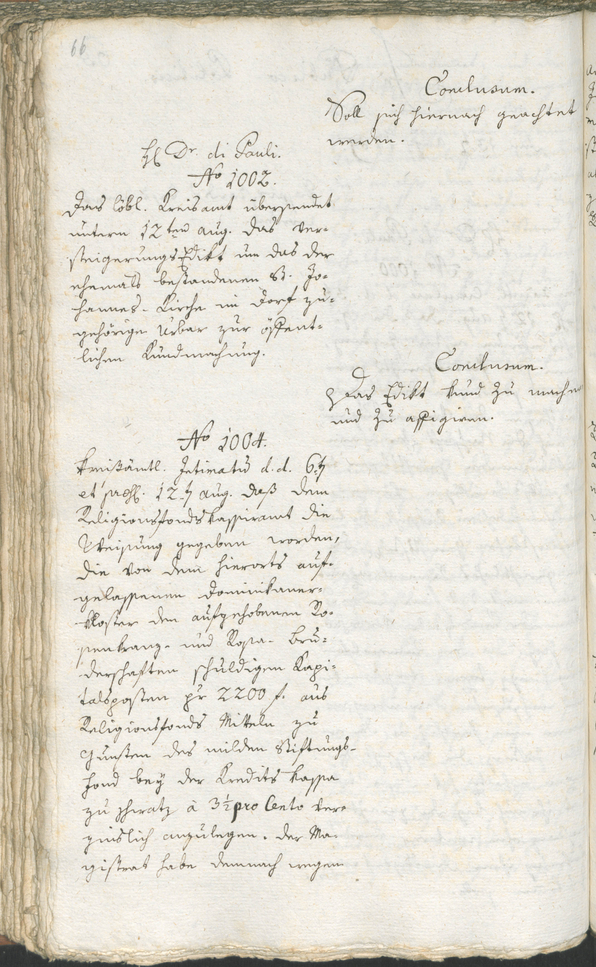 66
Conclusum.
Soll sich hiernach geachtet
werden.
H Dr. di Pauli.
No 1002.
Das löbl. Kreisamt übersendet
unterm 12ten Aug. das Ver-
steigerungsEdikt um das der
ehemals bestandenen St. Jo-
hannes-Kirche im Dorf zu-
gehörige Urbar zur öffent-
lichen Kundmachung.
Conclusum.
Das Edikt kund zu machen
und zu affigiren.
No 1004.
Kreisämtl. Intimatum d.d. 6
et 12 Aug. daß dem
Religionsfondskassieramt die
Weisung gegeben worden,
die von dem hierorts auf-
gelassenen Dominikaner-
kloster den aufgehobenen Ro-
senkranz- und Rosa- Bru-
derschaften schuldigen Kapi-
talsposten pr 2200 f. aus
Religionsfonds Mitteln zu
Gunsten des milden Stiftungs-
fond bey der Kredits Kassa
zu Schwatz à 3 1/2 pro Cento ver-
zinslich anzulegen. Der Ma-
gistrat habe demnach wegen